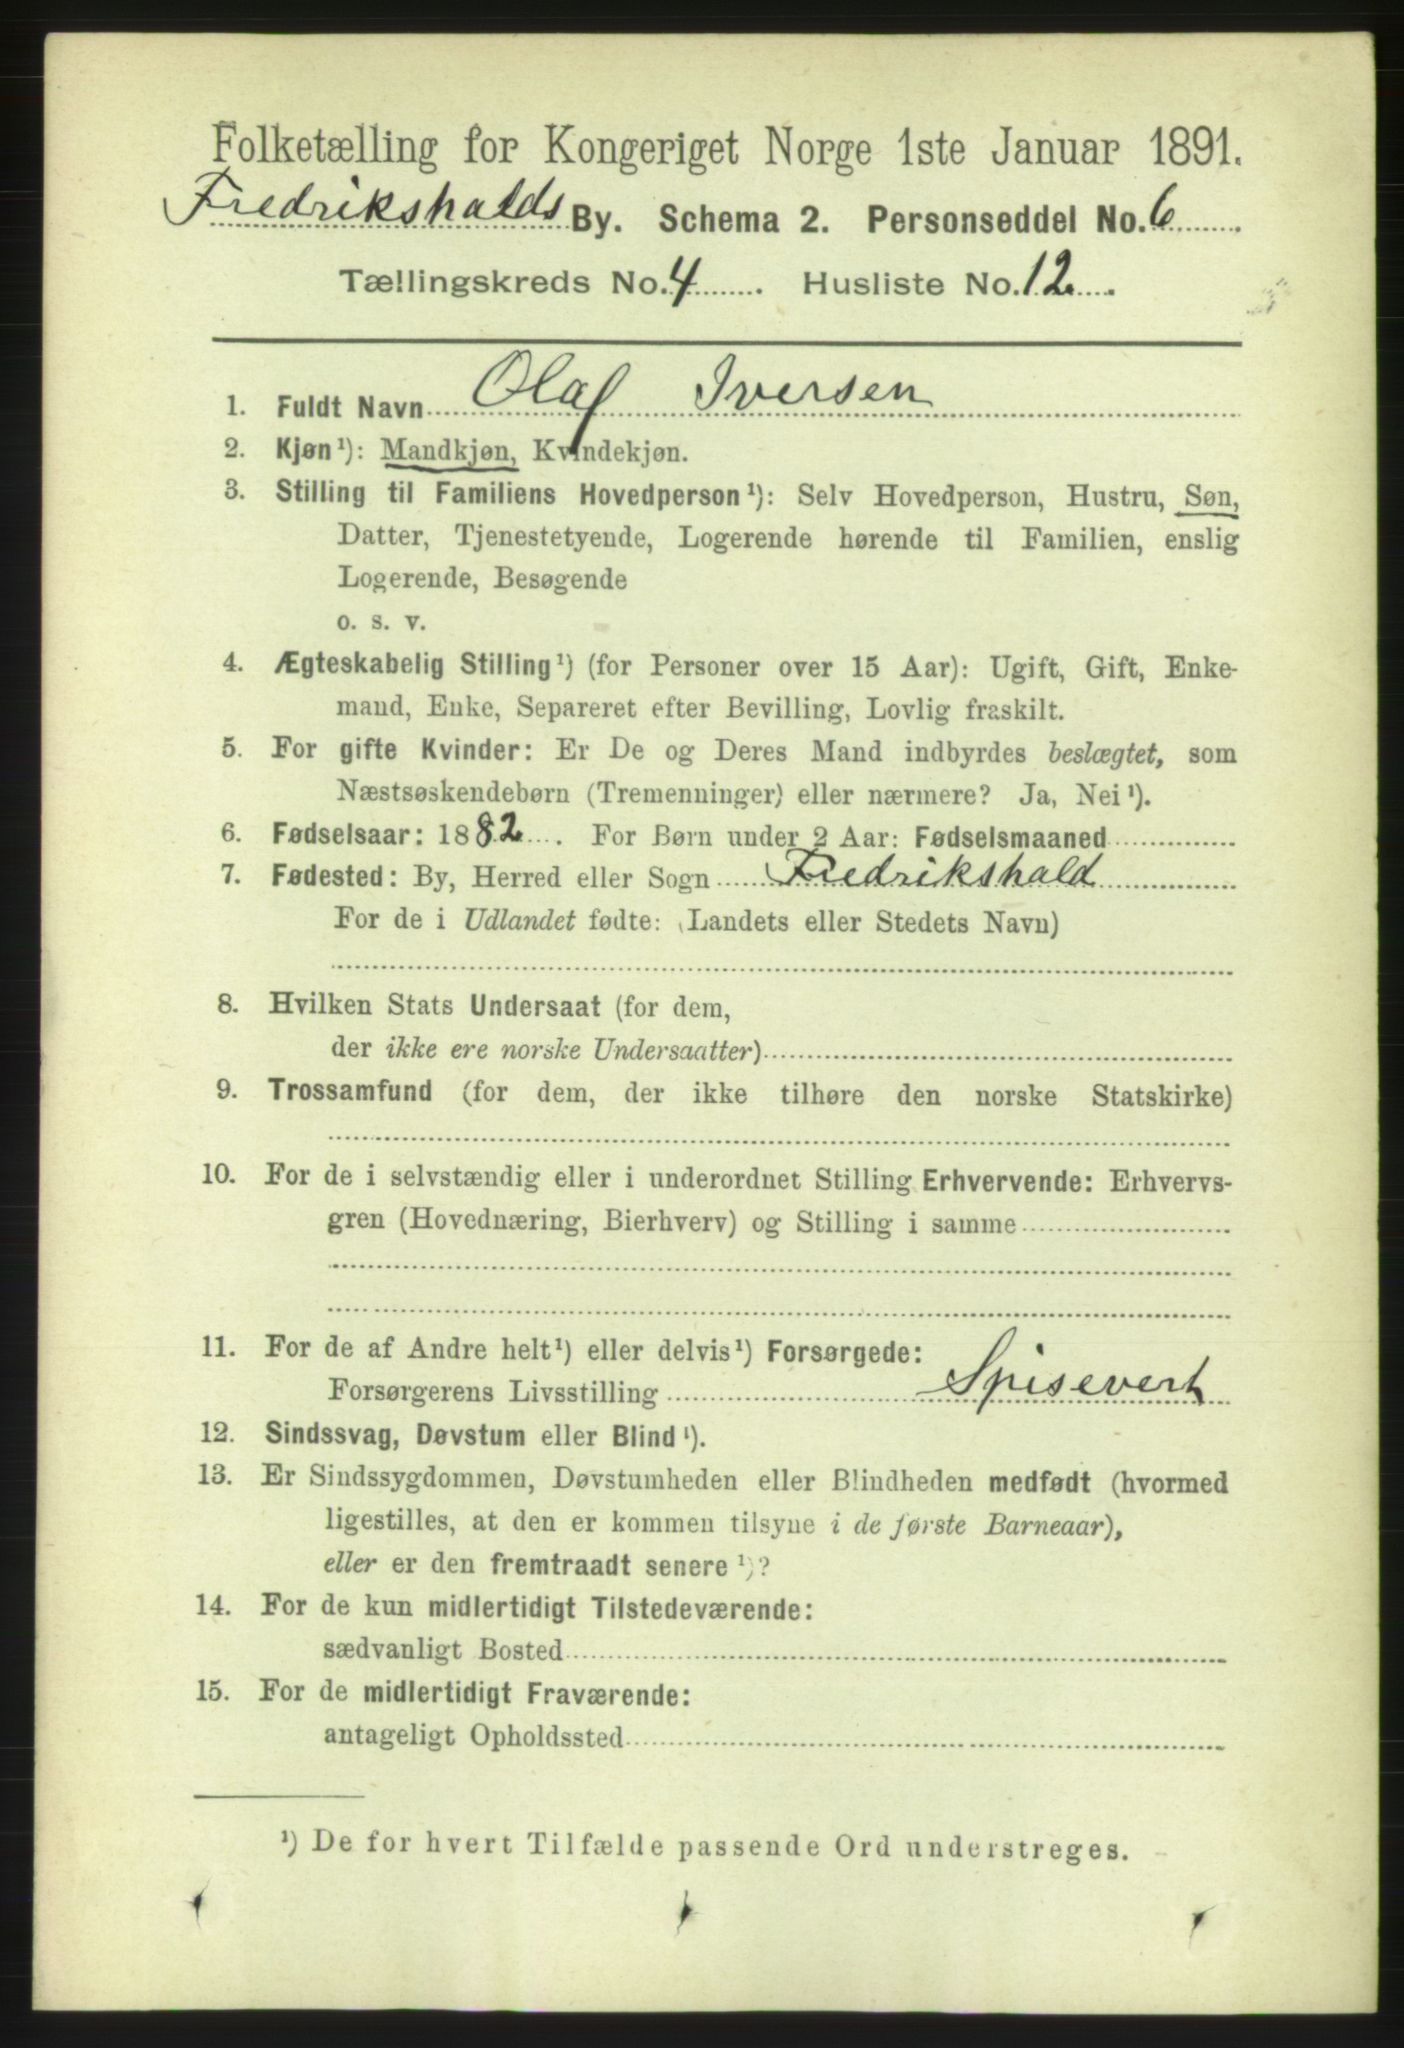 Folketælling for Kongeriget Norge 1ste Januar 1891.
Fredrikshalds By. Schema 2. Personseddel No. 6
Tællingskreds No. 4. Husliste No. 12.
1. Fuldt Navn Olaf Iversen
2. Kjøn¹): Mandkjøn, Kvindekjøn.
3. Stilling til Familiens Hovedperson¹): Selv Hovedperson, Hustru, Søn,
Datter, Tjenestetyende, Logerende hørende til Familien, enslig
Logerende, Besøgende
o. s. v.
4. Ægteskabelig Stilling¹) (for Personer over 15 Aar): Ugift, Gift, Enke-
mand, Enke, Separeret efter Bevilling, Lovlig fraskilt.
5. For gifte Kvinder: Er De og Deres Mand indbyrdes beslægtet, som
Næstsøskendebørn (Tremenninger) eller nærmere? Ja, Nei¹).
6. Fødselsaar: 1882. For Børn under 2 Aar: Fødselsmaaned
7. Fødested: By, Herred eller Sogn Fredrikshald
For de i Udlandet fødte: (Landets eller Stedets Navn)
8. Hvilken Stats Undersaat (for dem,
der ikke ere norske Undersaatter)
9. Trossamfund (for dem, der ikke tilhøre den norske Statskirke)
10. For de i selvstændig eller i underordnet Stilling Erhvervende: Erhvervs-
gren (Hovednæring, Bierhverv) og Stilling i samme
11. For de af Andre helt¹) eller delvis¹) Forsørgede:
Forsørgerens Livsstilling Spisevert
12. Sindssvag, Døvstum eller Blind¹).
13. Er Sindssygdommen, Døvstumheden eller Blindheden medfødt (hvormed
ligestilles, at den er kommen tilsyne i de første Barneaar),
eller er den fremtraadt senere¹)?
14. For de kun midlertidigt Tilstedeværende:
sædvanligt Bosted
15. For de midlertidigt Fraværende:
antageligt Opholdssted
¹) De for hvert Tilfælde passende Ord understreges.